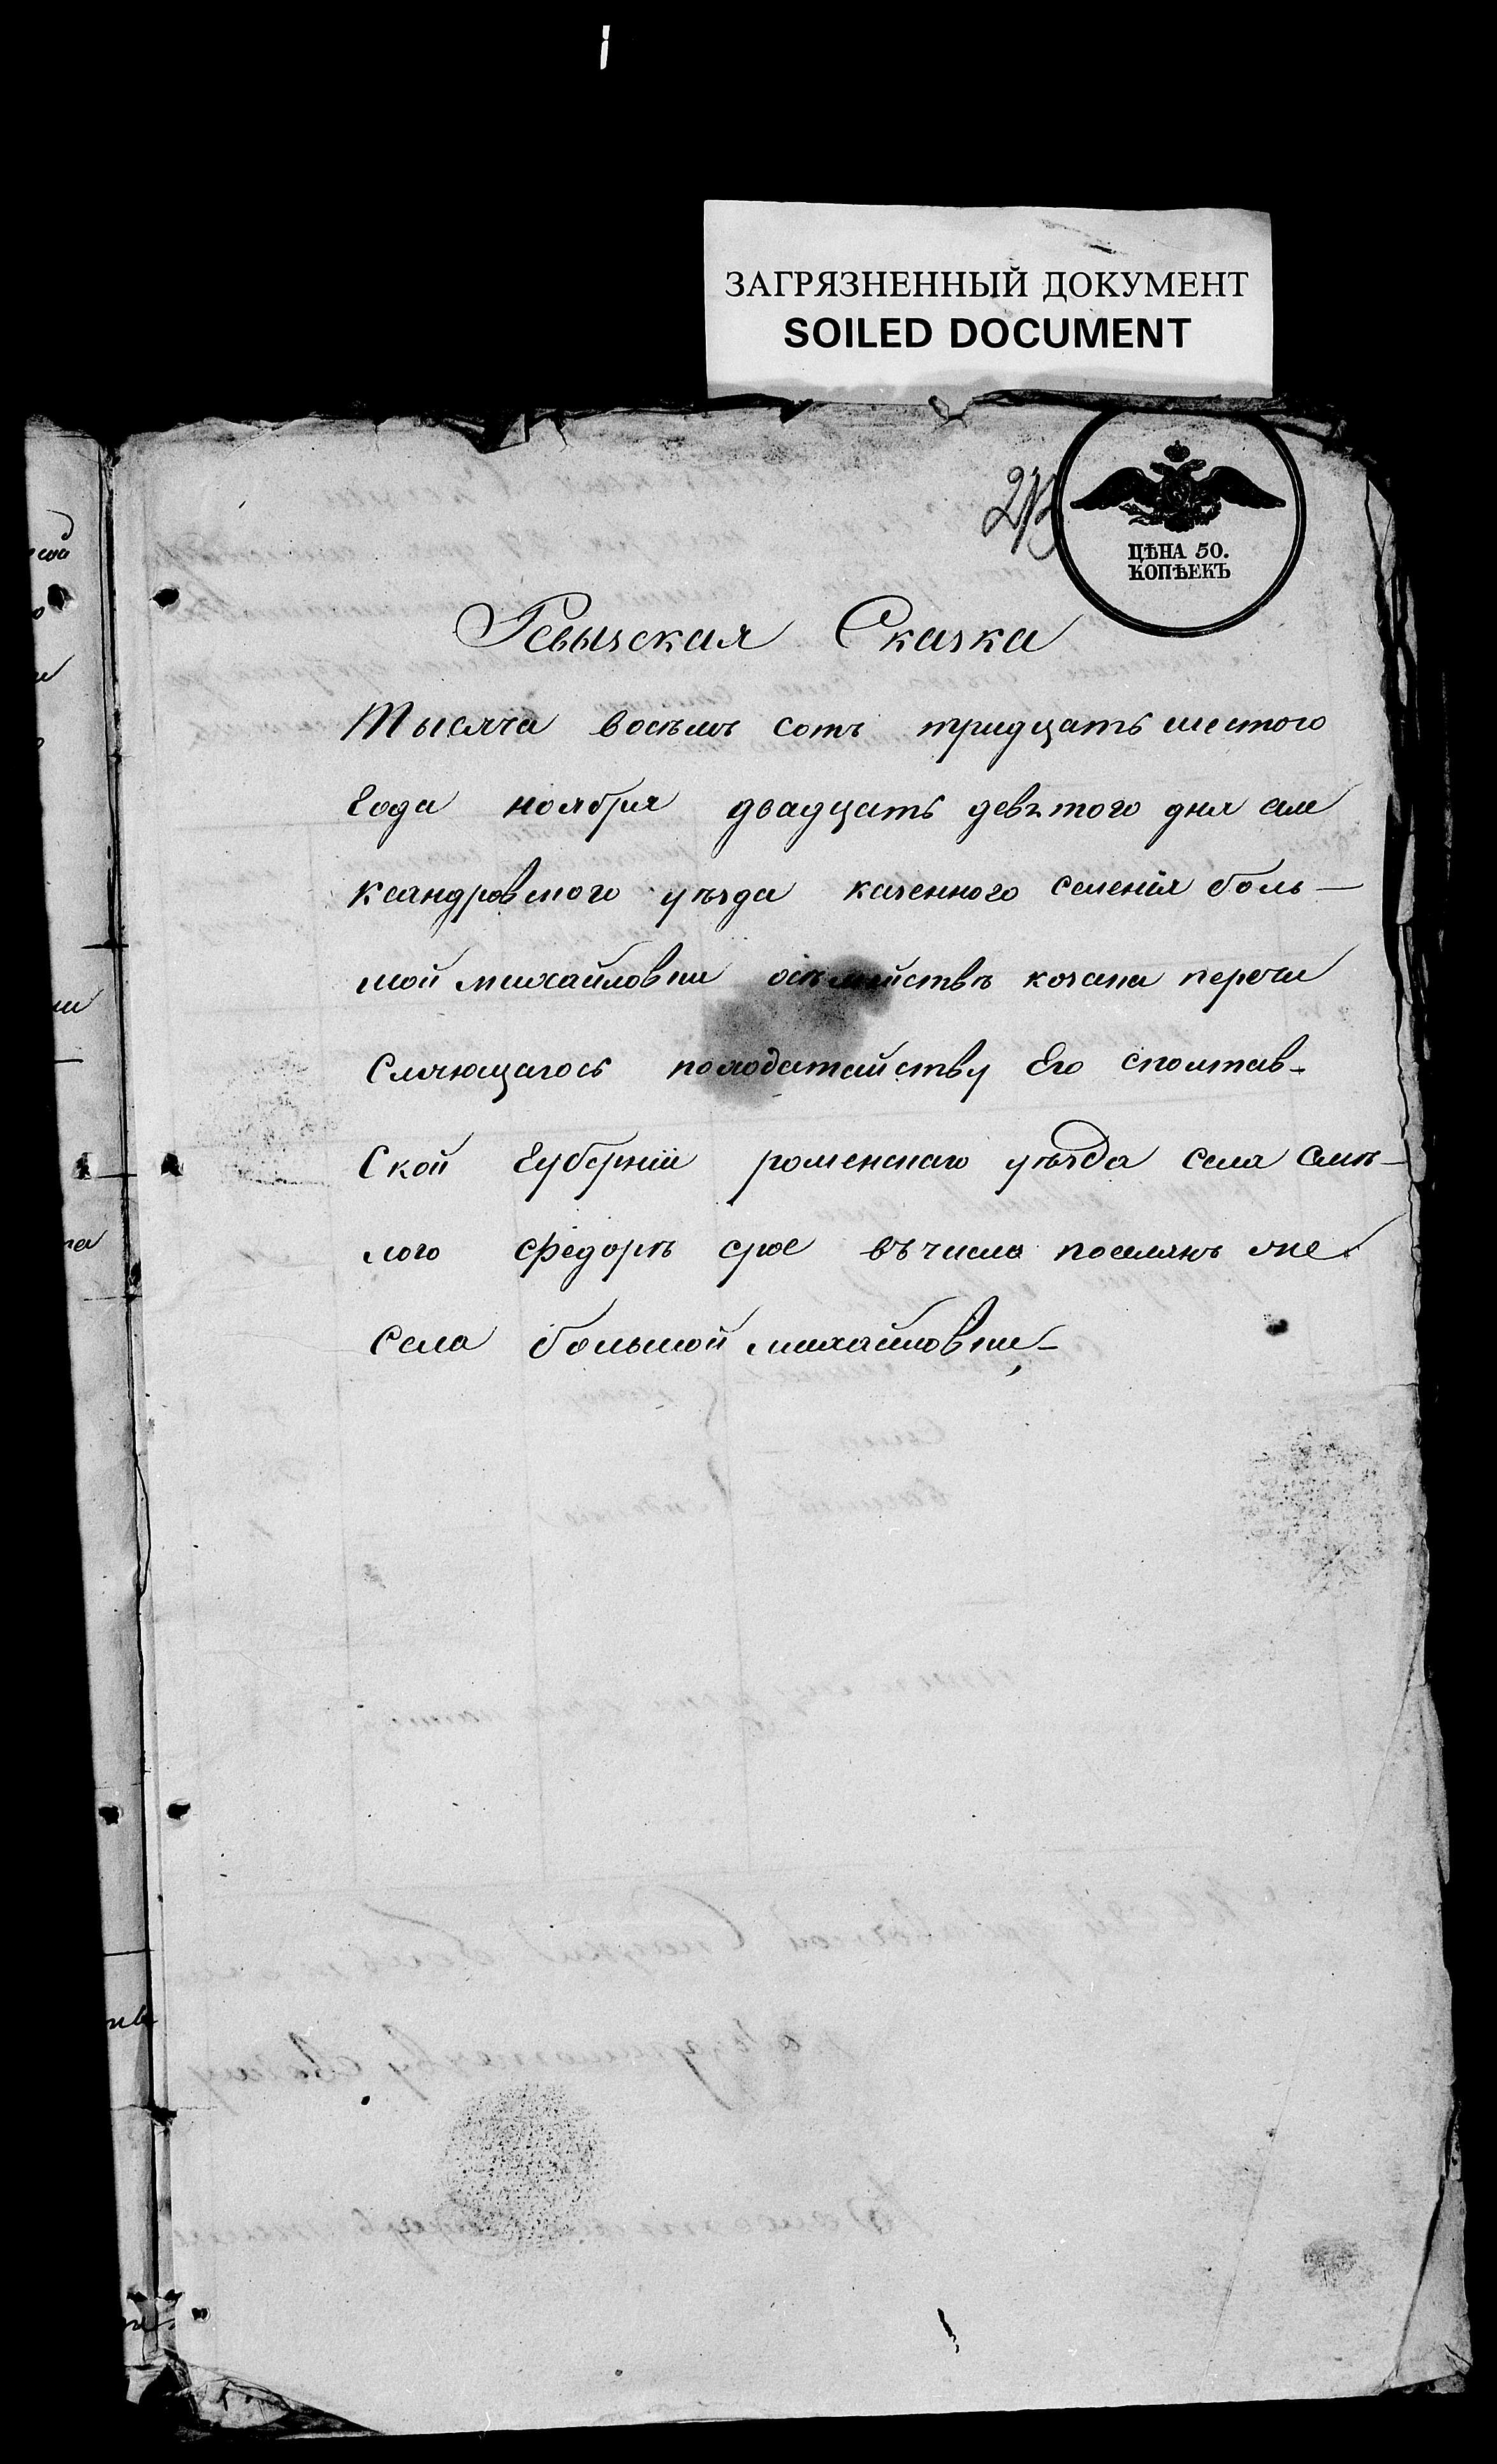 ЗАГРЯЗНЕННЫЙ ДОКУМЕНТ
SOILED DOCUMENT
ЦѢНА 50.
КОПѢЕКЪ
Ревызская Сказка
Тысяча восъмъ сотъ тридцать шестого
Года ноября двадцать девѣтого дня але
ксандровского уѣзда казенного селенія боль—
шой михайловки осѣмействѣ козака перечи
Сляющагось походатайству Его сполтав-
Ской Губерніи роменскаго уѣзда села Смѣ—
лого Федорѣ въ число поселянъ же
Села большой михайловки—